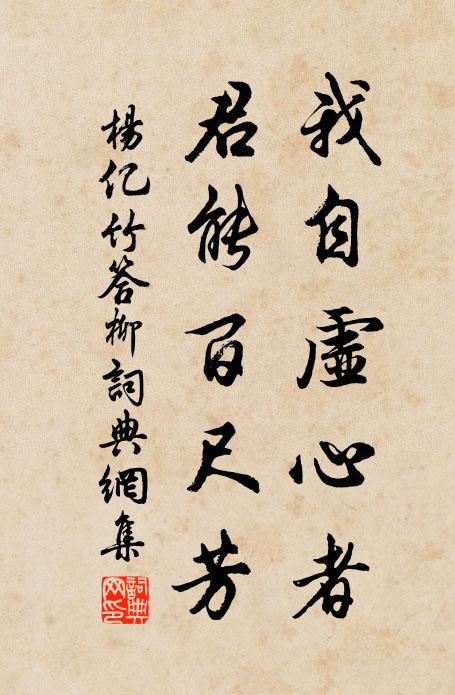 我自虛心者
君能百尺芳
楊亿竹答柳詞典網集
詞典網印